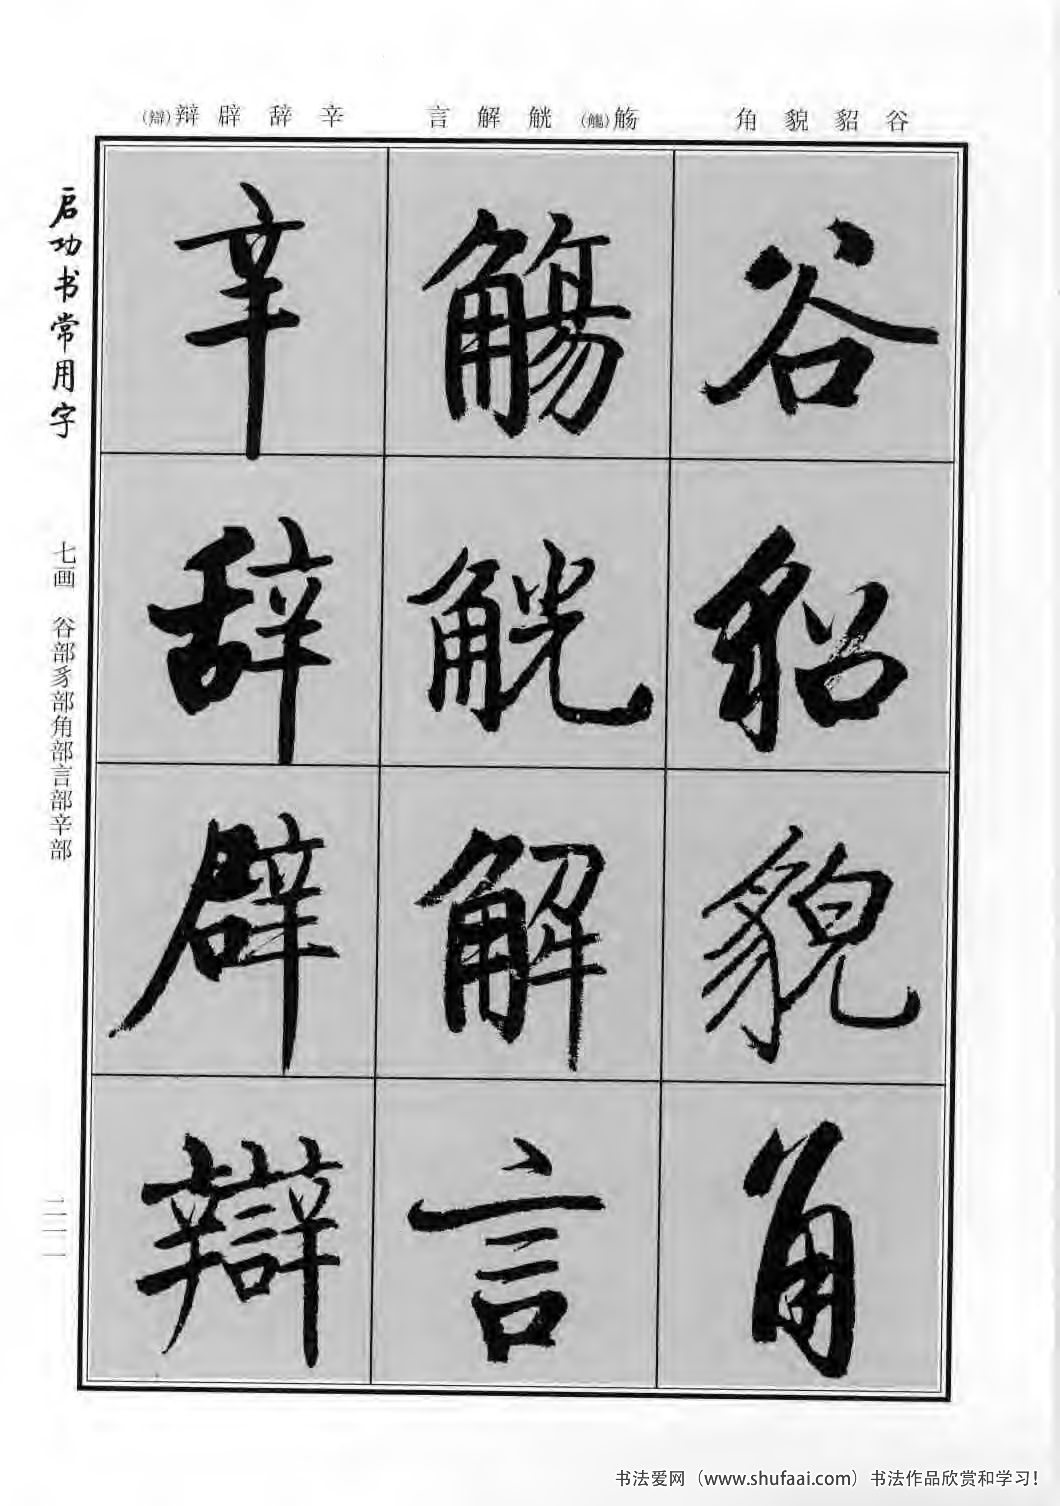 谷 貂 貌 角
觞(觴) 觥 解 言
辛 辞 辟 辩(辯)
谷
貂
貌
角
觴
觥
解
言
辛
辞
辟
辯
启功书常用字
七画 谷部豸部角部言部辛部
二一一
书法爱网（www.shufaai.com）书法作品欣赏和学习！